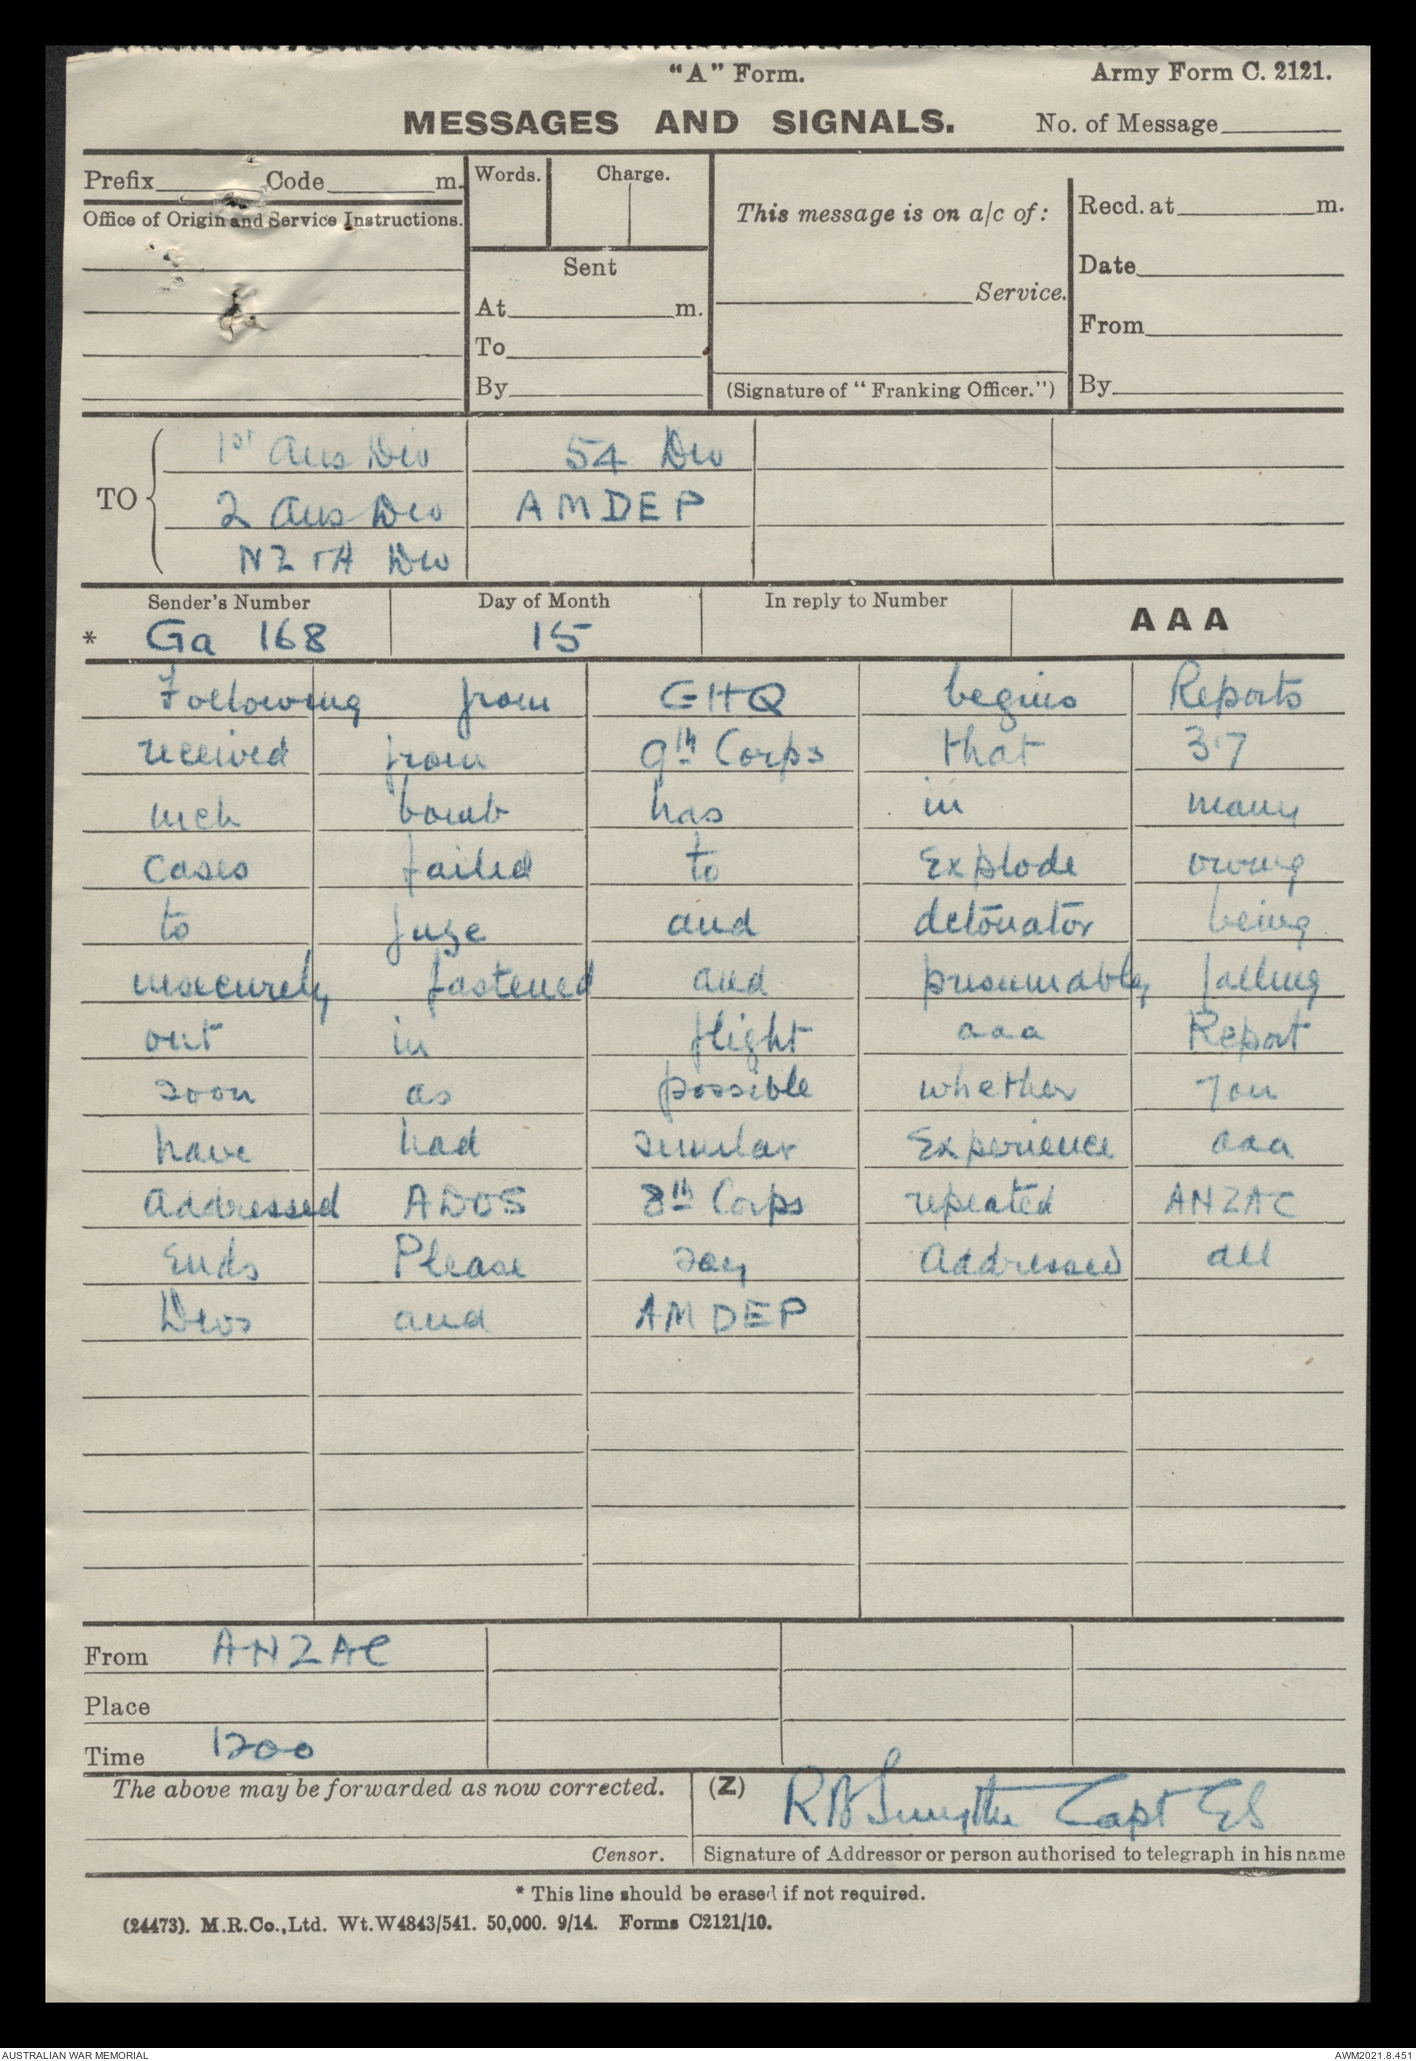 "A" Form.
Army Form C. 2121.
MESSAGES AND SIGNALS.
No. of Message
Prefix Code m.
Words. Charge.
This message is on a/c of:
Recd. at m.
Office of Origin and Service Instructions.
Sent
Date
Service.
At m.
From
To
By
(Signature of "Franking Officer.")
By
TO
1st Aus Div 54 Div
2 Aus Div AMDEP
NZ & A Div
Sender's Number Day of Month In reply to Number AAA
* Ga 168 15
Following from GHQ begins Reports
received from 9th Corps that 3.7
inch bomb has in many
cases failed to explode owing
to fuze and detonator being
insecurely fastened and presumably falling
out in flight aaa Report
soon as possible whether you
have had similar experience aaa
Addressed ADOS 8th Corps repeated ANZAC
Ends Please say Addressed all
Divs and AMDEP
From ANZAC
Place
Time 1200
The above may be forwarded as now corrected. (Z) Capt
Censor. Signature of Addressor or person authorised to telegraph in his name
* This line should be erased if not required.
(24473). M.R.Co.,Ltd. Wt.W4843/541. 50,000. 9/14. Forms C2121/10.
AUSTRALIAN WAR MEMORIAL
AWM2021.8.451